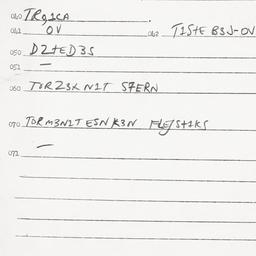 040 TR91CA
041 OV 042 T1StE B3J-OV
050 D2tED3S
051 —
060 TOR23X N1T S7ERN
070 TORM3N1T ESN K3N FLEJSt1KS
071 —